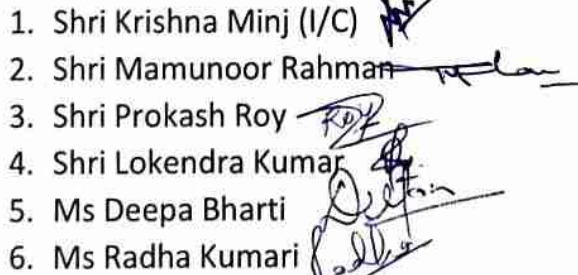 1. Shri Krishna Minj (I/C)
2. Shri Mamunoor Rahman
3. Shri Prokash Roy ROY
4. Shri Lokendra Kumar
5. Ms Deepa Bharti
6. Ms Radha Kumari Radha